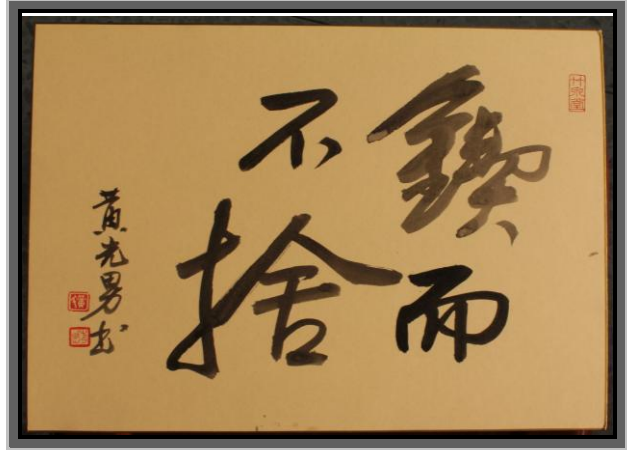 鍥而
不捨
黃光男书